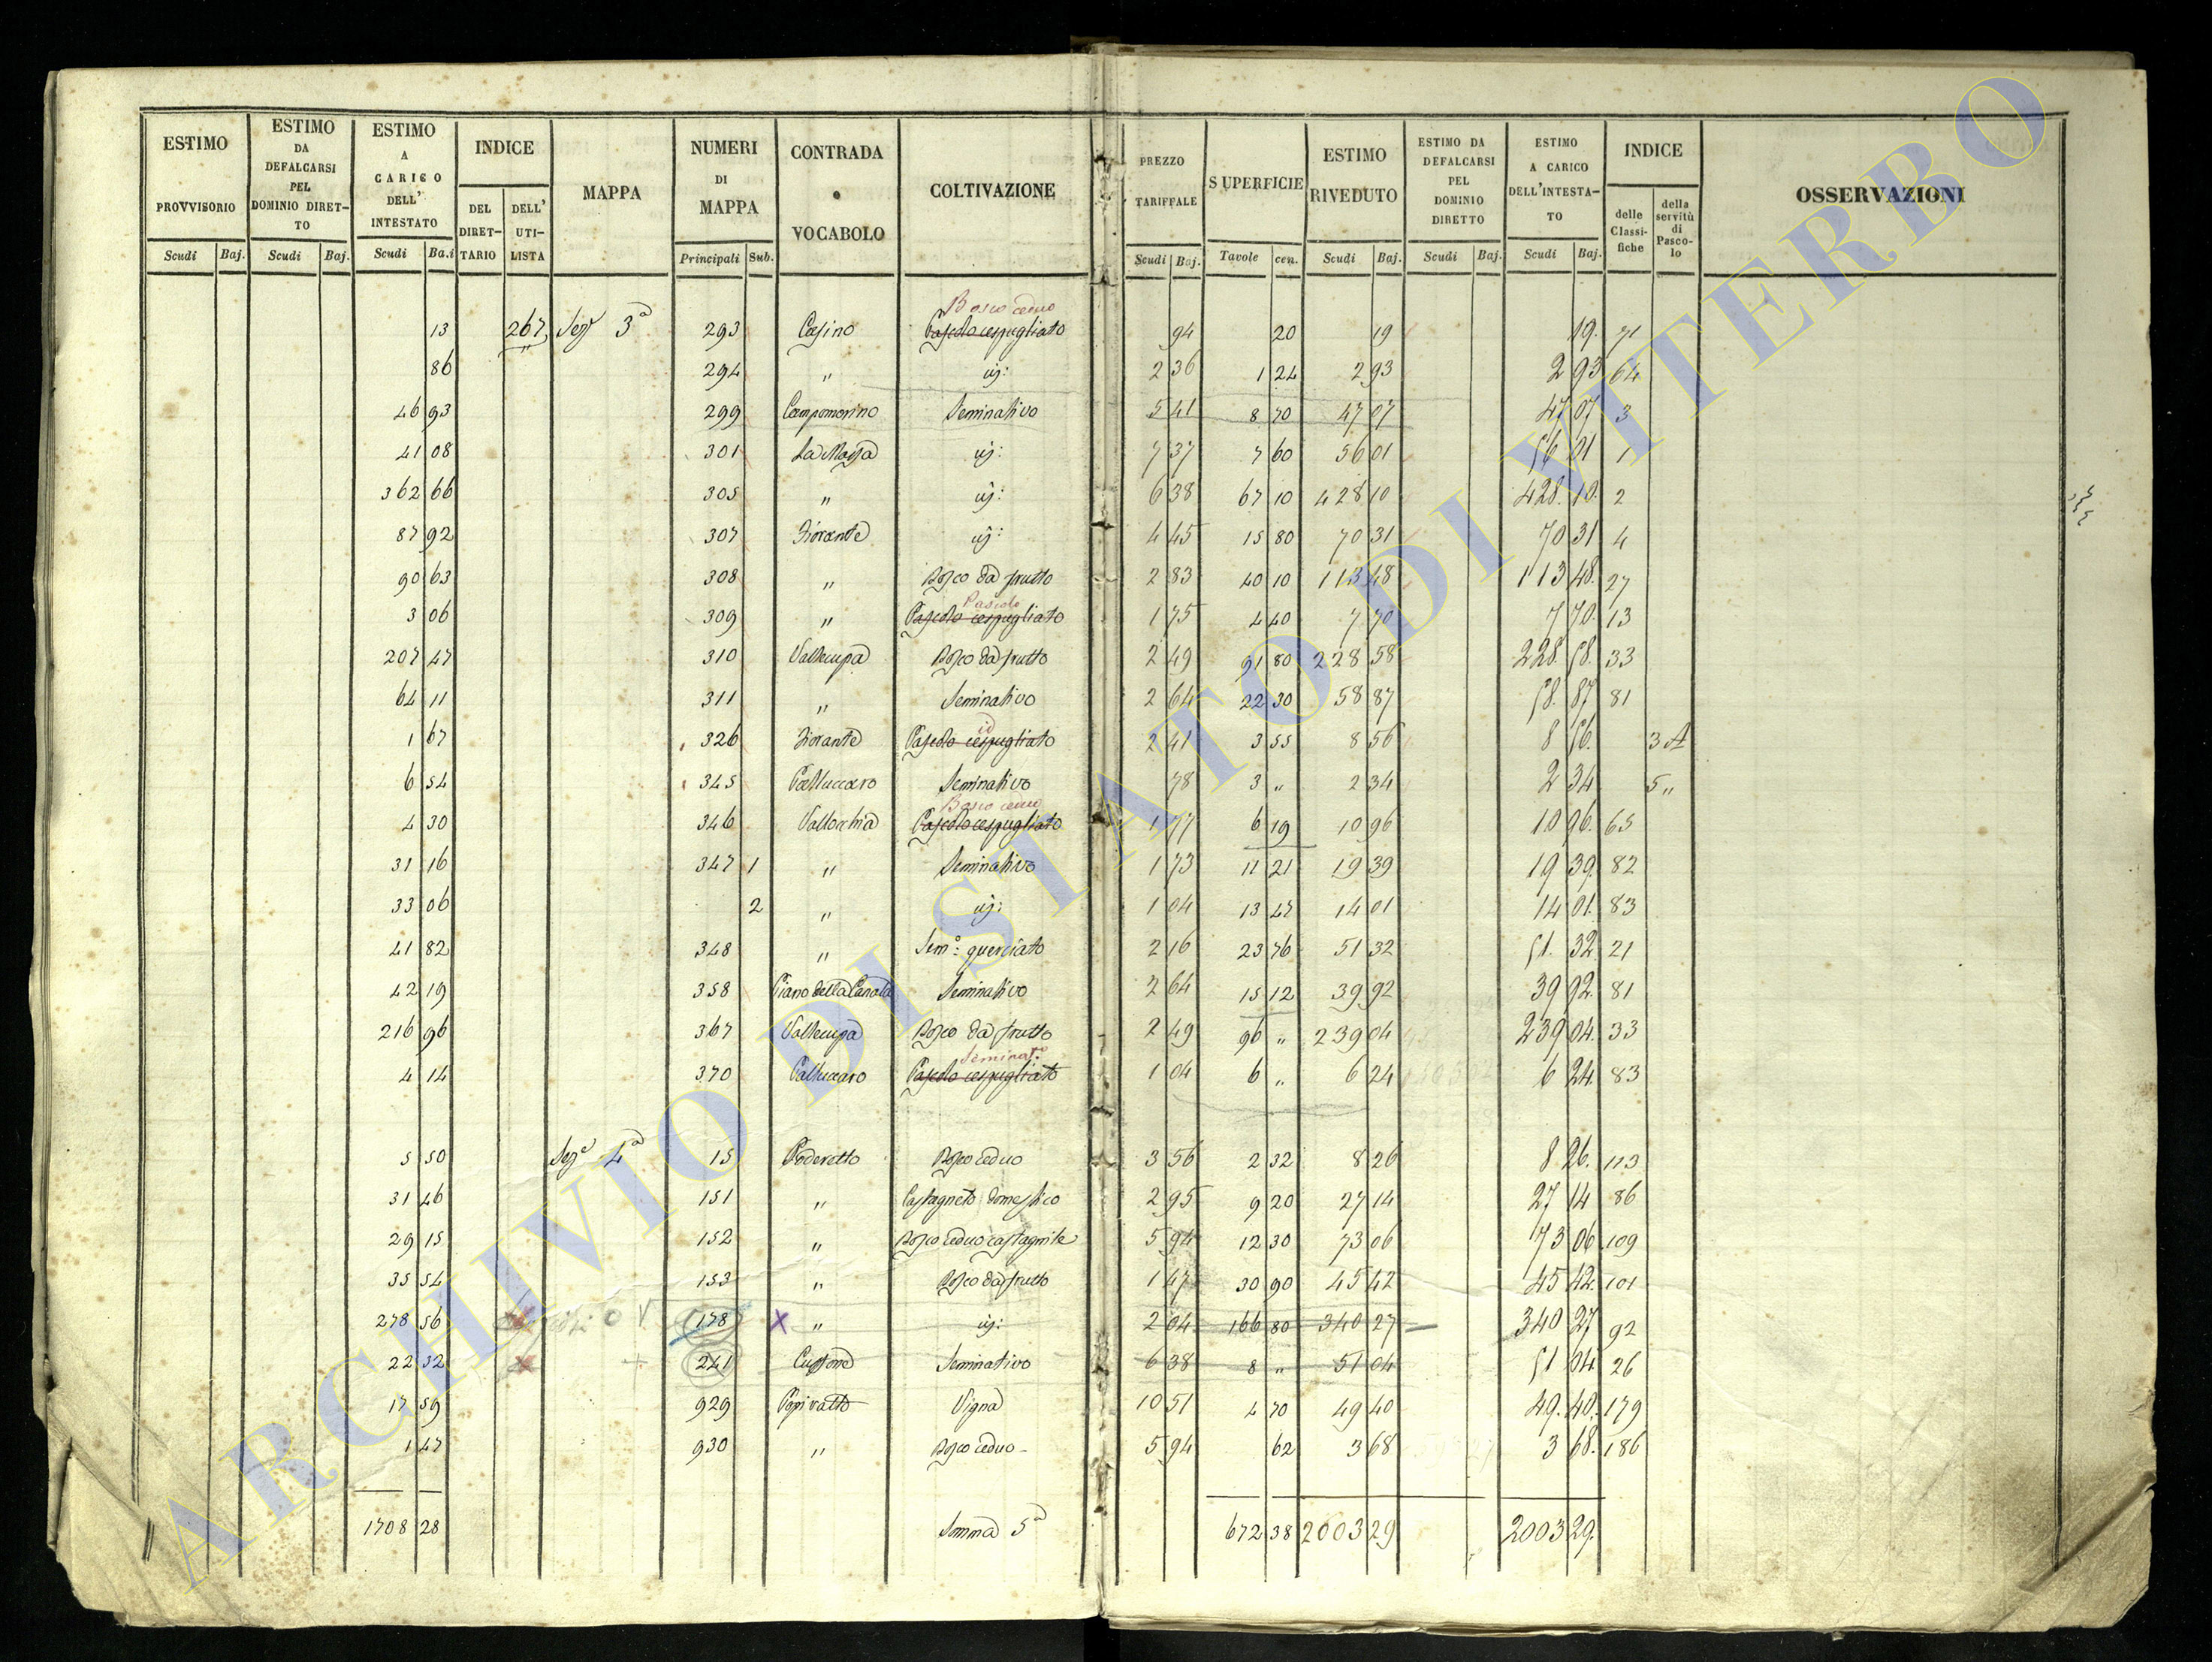 ESTIMO PROVVISORIO Scudi Baj.
ESTIMO DA DEFALCARSI PEL DOMINIO DIRET-TO Scudi Baj.
ESTIMO A CARICO DELL' INTESTATO Scudi Ba.i
INDICE DEL DIRET-TARIO DELL' UTI-LISTA
MAPPA
NUMERI DI MAPPA Principali Sub.
CONTRADA o VOCABOLO
COLTIVAZIONE
PREZZO TARIFFALE Scudi Baj.
SUPERFICIE Tavole cen.
ESTIMO RIVEDUTO Scudi Baj.
ESTIMO DA DEFALCARSI PEL DOMINIO DIRETTO Scudi Baj.
ESTIMO A CARICO DELL'INTESTA-TO Scudi Baj.
INDICE delle Classi-fiche della servitù di Pasco-lo
OSSERVAZIONI
Bosco ceduo
13 267 Sez.e 3a 293 Casino Pascolo cespugliato 94 20 19 19. 71
86 294 " id: 2 36 1 24 2 93 2 93 64
46 93 299 Campomorino Seminativo 5 41 8 70 47 07 47 07 3
41 08 301 La Massa id: 7 37 7 60 56 01 56 01 1
362 66 305 " id: 6 38 67 10 428 10 428. 10. 2
87 92 307 Fiorante id: 4 45 15 80 70 31 70 31 4
90 63 308 " Bosco da frutto 2 83 40 10 113 48 113 48. 27
Pascolo
3 06 309 " Pascolo cespugliato 1 75 4 40 7 70 7 70. 13
207 47 310 Vallecupa Bosco da frutto 2 49 91 80 228 58 228. 58. 33
64 11 311 " Seminativo 2 64 22 30 58 87 58. 87. 81
id
1 67 326 Fiorante Pascolo cespugliato 2 41 3 55 8 56 8 56. 3 A
6 54 345 Palluccaro Seminativo 78 3 " 2 34 2 34 5 "
Bosco ceduo
4 30 346 Vallocchia Pascolo cespugliato 1 77 6 19 10 96 10 96. 65
31 16 347 1 " Seminativo 1 73 11 21 19 39 19 39. 82
33 06 2 " id: 1 04 13 47 14 01 14 01. 83
41 82 348 " Sem.o querciato 2 16 23 76 51 32 51. 32 21
42 19 358 Piano della Canala Seminativo 2 64 15 12 39 92 39 92. 81
216 96 367 Vallecupa Bosco da frutto 2 49 96 " 239 04 239 04. 33
Seminat.o
4 14 370 Palluccaro Pascolo cespugliato 1 04 6 " 6 24 6 24. 83
5 50 Sez.e 4a 15 Poderetto Bosco ceduo 3 56 2 32 8 26 8 26. 113
31 46 151 " Castagneto domestico 2 95 9 20 27 14 27 14 86
29 15 152 " Bosco ceduo castagnile 5 94 12 30 73 06 73 06 109
35 54 153 " Bosco da frutto 1 47 30 90 45 42 45 42. 101
278 56 178 X " id: 2 04 166 80 340 27 340 27 92
22 32 241 Seminativo 6 38 8 " 51 04 51 04. 26
17 59 929 Vigna 10 51 4 70 49 40 49. 40. 179
1 47 930 " Bosco ceduo 5 94 62 3 68 3 68. 186
1708 28 Somma 5a 672 38 2003 29 2003 29.
ARCHIVIO DI STATO DI VITERBO